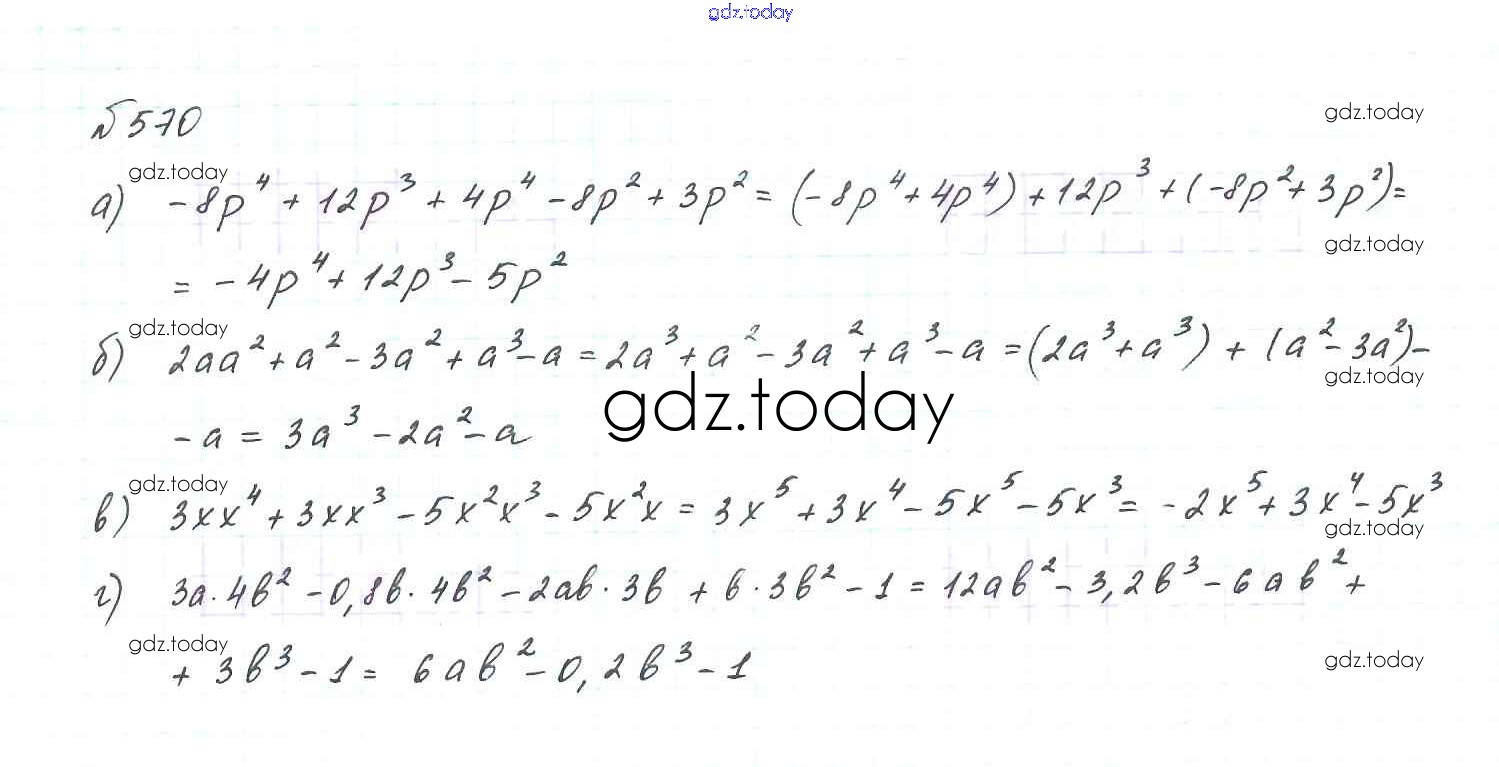 gdz.today
№570
gdz.today
gdz.today
а) -8p⁴ + 12p³ + 4p⁴ - 8p² + 3p² = (-8p⁴ + 4p⁴) + 12p³ + (-8p² + 3p²) =
gdz.today
= -4p⁴ + 12p³ - 5p²
gdz.today
б) 2aa² + a² - 3a² + a³ - a = 2a³ + a² - 3a² + a³ - a = (2a³ + a³) + (a² - 3a²) -
gdz.today
gdz.today
- a = 3a³ - 2a² - a
gdz.today
в) 3xx⁴ + 3xx³ - 5x²x³ - 5x²x = 3x⁵ + 3x⁴ - 5x⁵ - 5x³ = -2x⁵ + 3x⁴ - 5x³
gdz.today
г) 3a · 4b² - 0,8b · 4b² - 2ab · 3b + b · 3b² - 1 = 12ab² - 3,2b³ - 6ab² +
gdz.today
+ 3b³ - 1 = 6ab² - 0,2b³ - 1
gdz.today